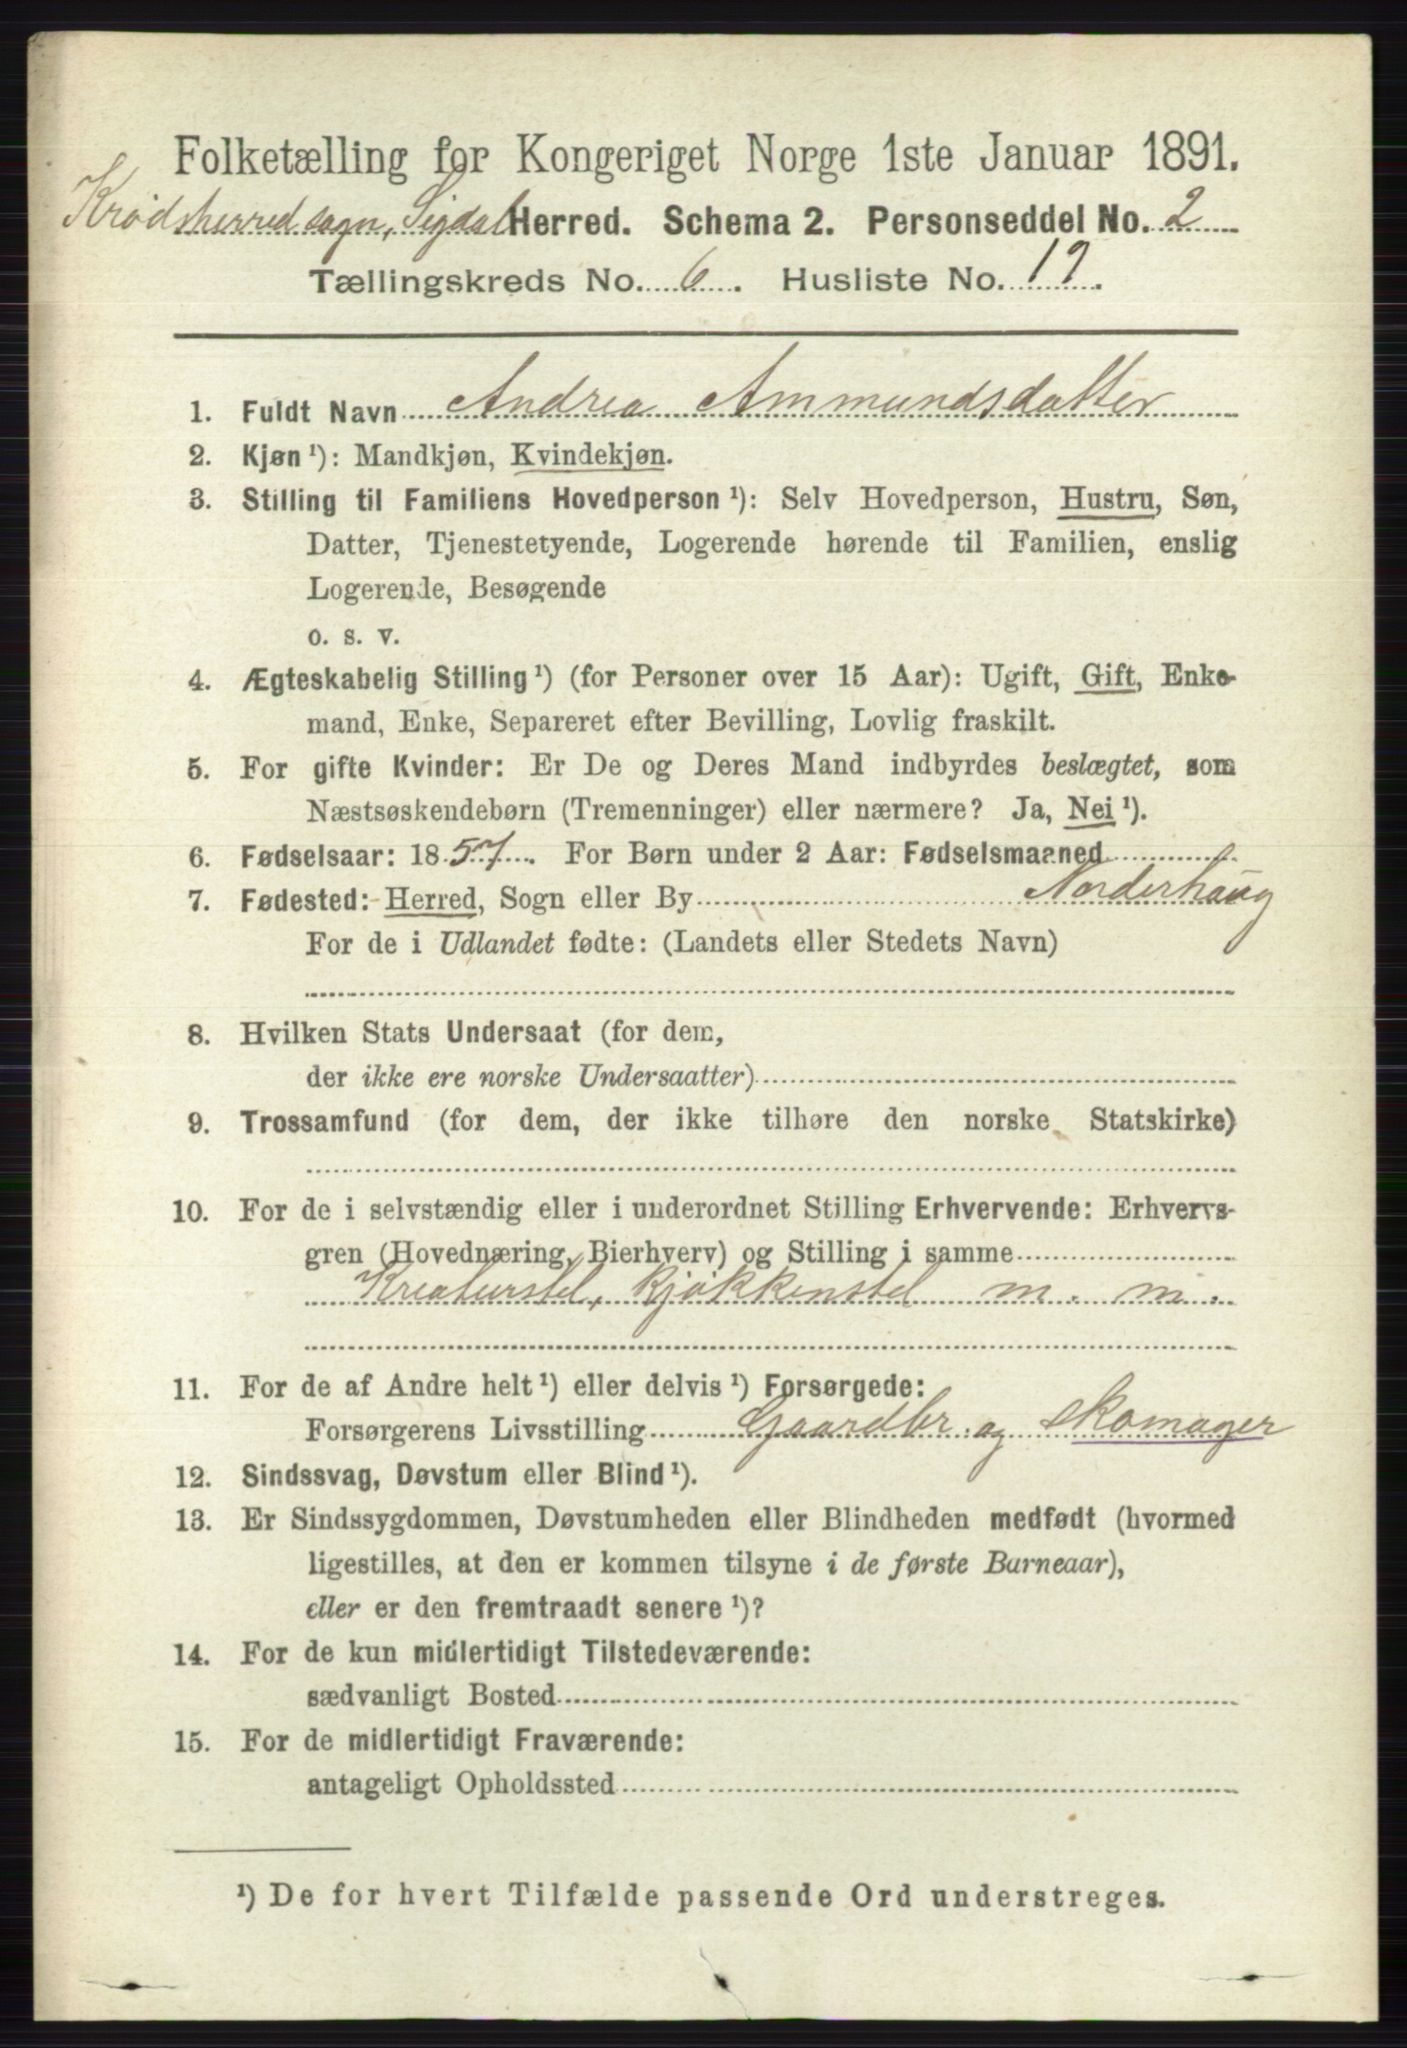 Folketælling for Kongeriget Norge 1ste Januar 1891.
Krødsherred sogn, Sigdal Herred. Schema 2. Personseddel No. 2
Tællingskreds No. 6. Husliste No. 19.
1. Fuldt Navn Andrea Ammundsdatter
2. Kjøn ¹): Mandkjøn, Kvindekjøn.
3. Stilling til Familiens Hovedperson ¹): Selv Hovedperson, Hustru, Søn,
Datter, Tjenestetyende, Logerende hørende til Familien, enslig
Logerende, Besøgende
o. s. v.
4. Ægteskabelig Stilling ¹) (for Personer over 15 Aar): Ugift, Gift, Enke-
mand, Enke, Separeret efter Bevilling, Lovlig fraskilt.
5. For gifte Kvinder: Er De og Deres Mand indbyrdes beslægtet, som
Næstsøskendebørn (Tremenninger) eller nærmere? Ja, Nei ¹).
6. Fødselsaar: 1857. For Børn under 2 Aar: Fødselsmaaned
7. Fødested: Herred, Sogn eller By Norderhaug
For de i Udlandet fødte: (Landets eller Stedets Navn)
8. Hvilken Stats Undersaat (for dem,
der ikke ere norske Undersaatter)
9. Trossamfund (for dem, der ikke tilhøre den norske Statskirke)
10. For de i selvstændig eller i underordnet Stilling Erhvervende: Erhvervs-
gren (Hovednæring, Bierhverv) og Stilling i samme
Kreaturstel, Kjøkkenstel m. m.
11. For de af Andre helt ¹) eller delvis ¹) Forsørgede:
Forsørgerens Livsstilling Gaardbr. og skomager
12. Sindssvag, Døvstum eller Blind ¹).
13. Er Sindssygdommen, Døvstumheden eller Blindheden medfødt (hvormed
ligestilles, at den er kommen tilsyne i de første Barneaar),
eller er den fremtraadt senere ¹)?
14. For de kun midlertidigt Tilstedeværende:
sædvanligt Bosted
15. For de midlertidigt Fraværende:
antageligt Opholdssted
¹) De for hvert Tilfælde passende Ord understreges.